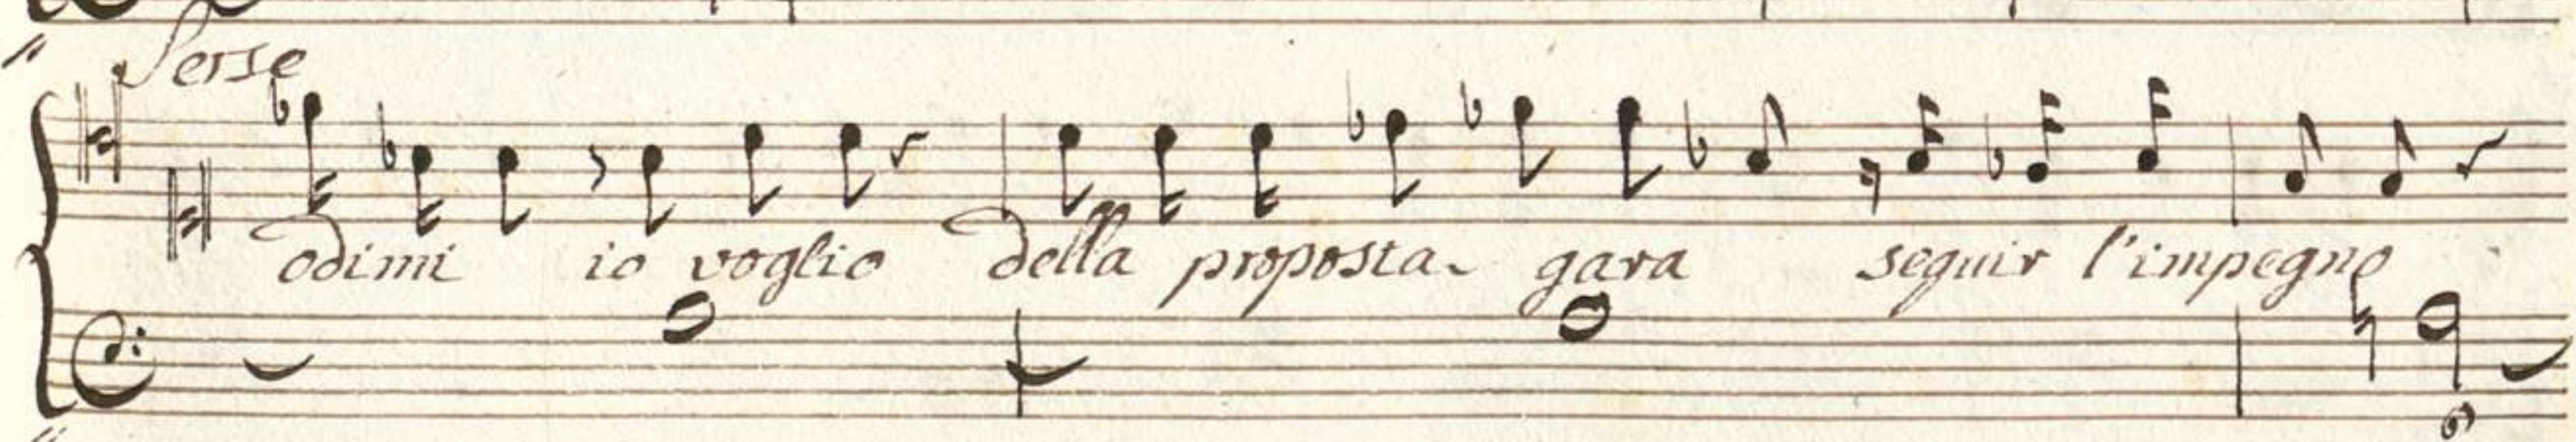 Serse
odimi io voglio della proposta gara seguir l'impegno
6